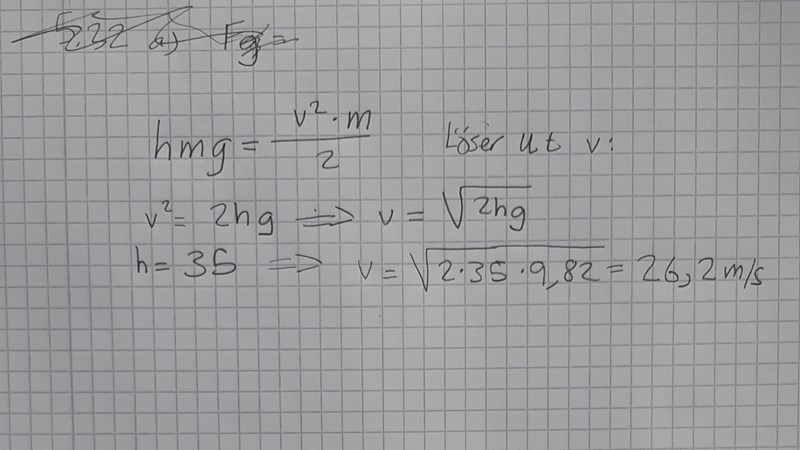 5.32 a) Fg =
hmg = v²·m / 2 Löser ut v:
v² = 2hg ⇒ v = √2hg
h = 35 ⇒ v = √2·35·9,82 = 26,2 m/s